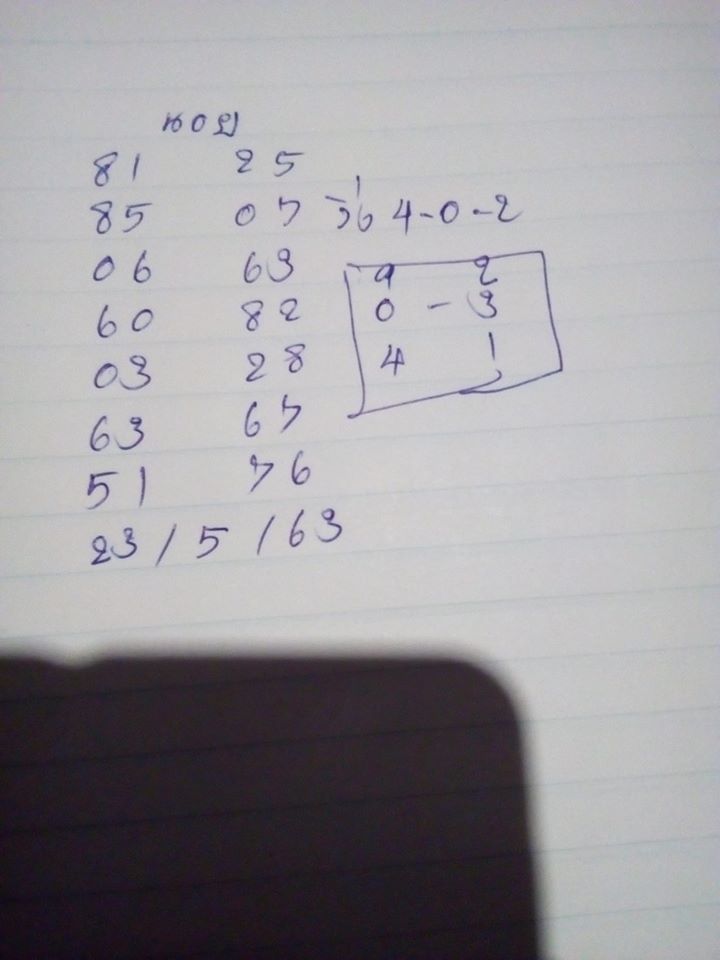 ฮอย
81 25
85 07
06 63
60 82
03 28
63 67
51 76
23 / 5 / 63
4-0-2
9 2
0 - 3
4 1